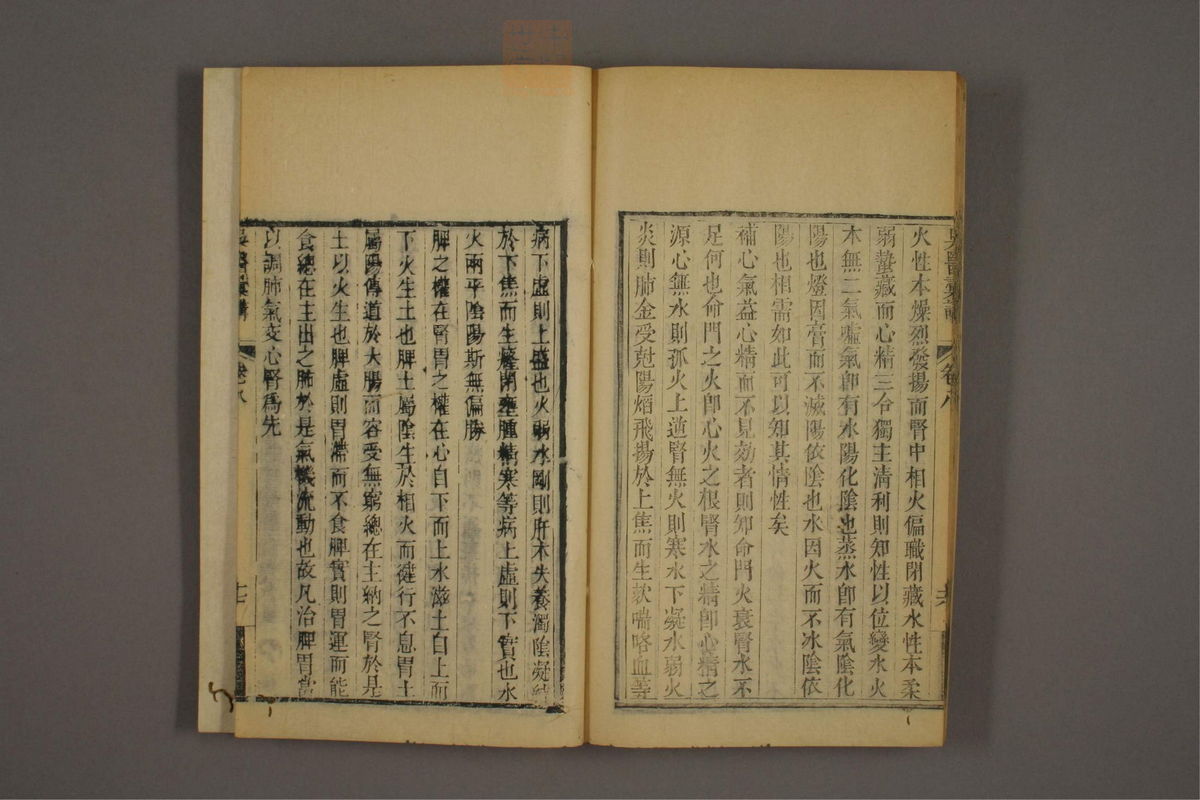 火性本燥烈發揚而腎中相火偏職閉藏水性本柔
弱蟄藏而心精三合獨主清利則知性以位變水火
本無二氣噓氣卽有水陽化陰也蒸水卽有氣陰化
陽也燈因膏而不滅陽依陰也水因火而不冰陰依
陽也相需如此可以知其情性矣
補心氣益心精而不見效者則知命門火衰腎水不
足何也命門之火卽心火之根腎水之精卽心精之
源心無水則孤火上逆腎無火則寒水下凝水弱火
炎則肺金受尅陽焰飛揚於上焦而生欬喘咯血等
吳醫彙講
卷八
病下虛則上盛也火弱水剛則肝木失養濁陰凝結
於下焦而生癃閉壅腫精寒等病上虛則下實也水
火兩平陰陽斯無偏勝
脾之權在腎胃之權在心自下而上水滋土自上而
下火生土也脾土屬陰生於相火而健行不息胃土
屬陽傳道於大腸而容受無窮總在主納之腎於是
土以火生也脾虛則胃滯而不食脾實則胃運而能
食總在主出之肺於是氣機流動也故凡治脾胃當
以調肺氣交心腎爲先
吳醫彙講
卷八